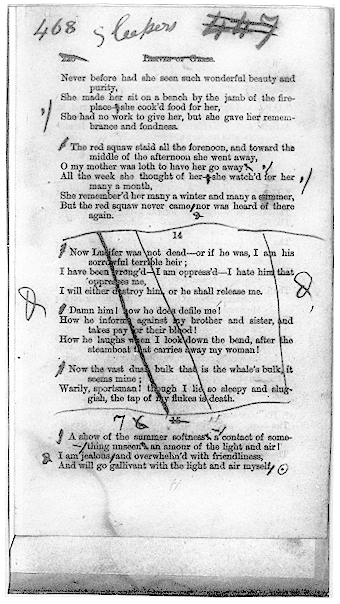 468 Sleepers 447
LEAVES OF GRASS.
Never before had she seen such wonderful beauty and
purity,
She made her sit on a bench by the jamb of the fire-
place—she cook'd food for her,
She had no work to give her, but she gave her remem-
brance and fondness.
The red squaw staid all the forenoon, and toward the
middle of the afternoon she went away,
O my mother was loth to have her go away
All the week she thought of her—she watch'd for her
many a month,
She remember'd her many a winter and many a summer,
But the red squaw never came, nor was heard of there
again.
14
Now Lucifer was not dead—or if he was, I am his
sorrowful terrible heir;
I have been wrong'd—I am oppress'd—I hate him that
oppresses me,
I will either destroy him, or he shall release me.
Damn him! how he does defile me!
How he informs against my brother and sister, and
takes pay for their blood!
How he laughs when I look down the bend, after the
steamboat that carries away my woman!
Now the vast dusk bulk that is the whale's bulk, it
seems mine;
Warily, sportsman! though I lie so sleepy and slug-
gish, the tap of my flukes is death.
7 15
A show of the summer softness a contact of some-
thing unseen an amour of the light and air!
I am jealous, and overwhelm'd with friendliness,
And will go gallivant with the light and air myself,